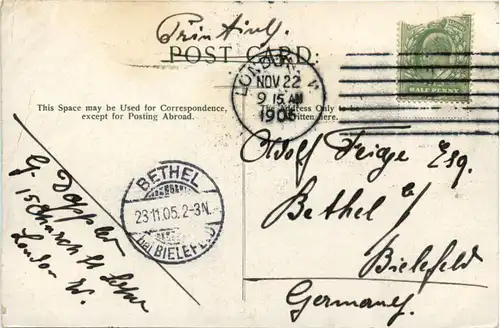 POST CARD.
This Space may be Used for Correspondence,
except for Posting Abroad.
The Address Only to be
Written here.
LONDON. W
NOV 22
9 15 AM
1905
HALF PENNY
BETHEL
23.11.05.2-3N.
(bei BIELEFELD)
G. Doppler
15 Church St
London W.
Adolf Esq.
Bethel b/
Bielefeld
Germany.